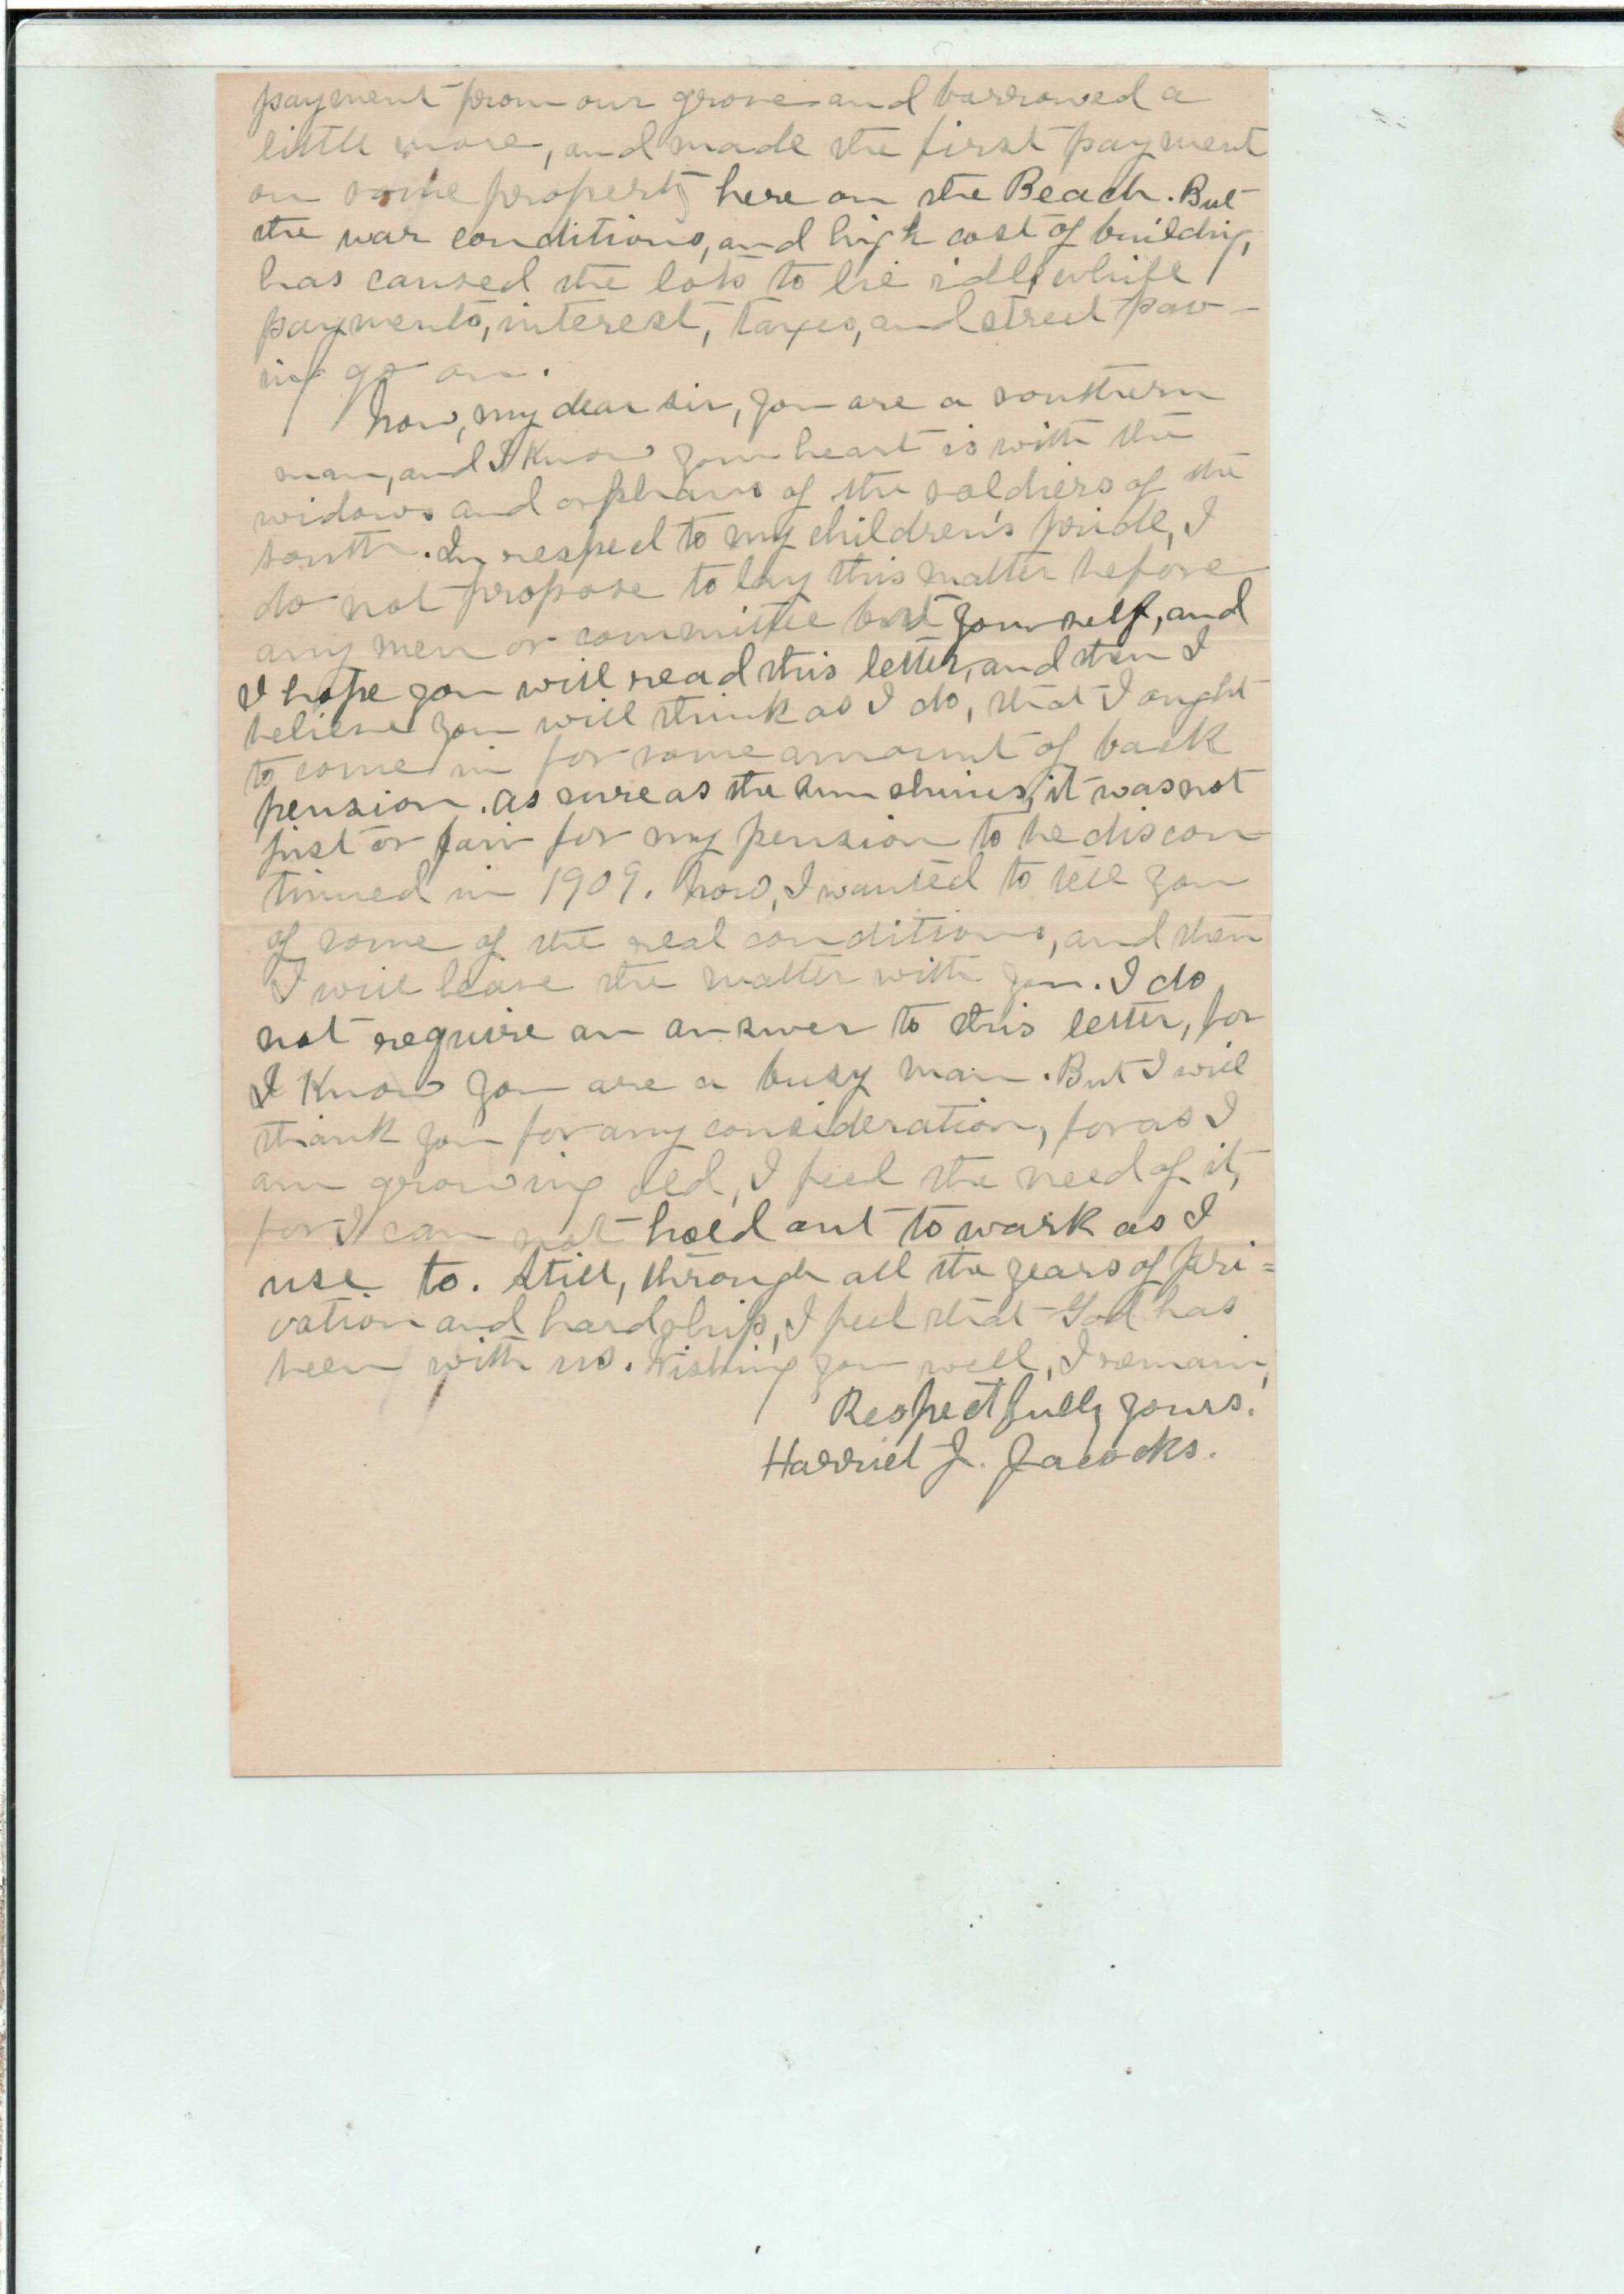 payment from our grove and borrowed a
little more, and made the first payment
on some property here on the Beach. But
the war conditions, and high cost of building,
has caused the lots to lie idle, while
payments, interest, taxes, and street pav-
ing go on.
Now, my dear sir, you are a southern
man, and I know your heart is with the
widows and orphans of the soldiers of the
south. In respect to my children's pride, I
do not propose to lay this matter before
any men or committee but yourself, and
I hope you will read this letter, and then I
believe you will think as I do, that I ought
to come in for some amount of back
pension. As sure as the sun shines, it was not
just or fair for my pension to be discon
tinued in 1909. Now, I wanted to tell you
of some of the real conditions, and then
I will leave the matter with you. I do
not require an answer to this letter, for
I know you are a busy man. But I will
thank you for any consideration, for as I
am growing old, I feel the need of it,
for I can not hold out to work as I
use to. Still, through all the years of pri=
vation and hardship, I feel that God has
been with us. Wishing you well, I remain,
Respectfully yours.
Harriet J. Jacocks.